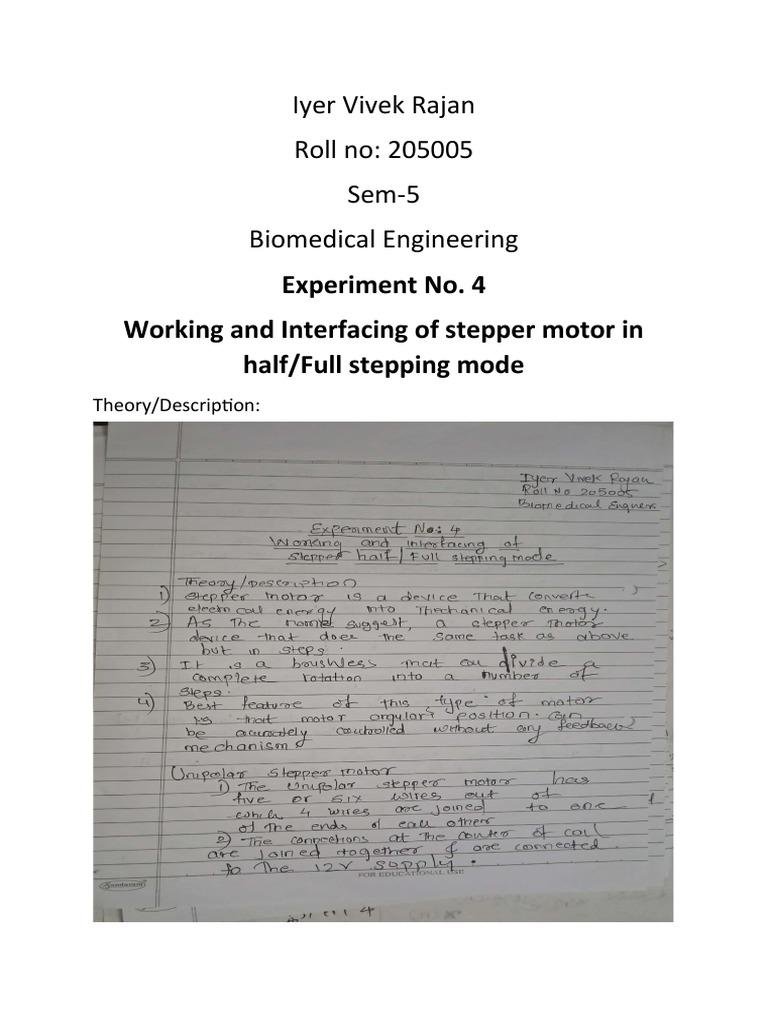 Iyer Vivek Rajan
Roll no: 205005
Sem-5
Biomedical Engineering
Experiment No. 4
Working and Interfacing of stepper motor in
half/Full stepping mode
Theory/Description:
Iyer Vivek Rajan
Roll No 205005
Biomedical
Experiment No: 4
Working and interfacing of
stepper half/Full stepping mode
Theory/Description
1) Stepper motor is a device that converts
electrical energy into Mechanical energy.
2) As the name suggest, a stepper motor
device that does the same task as above
but in steps.
3) It is a brushless that can divide a
complete rotation into a number of
steps.
4) Best feature of this type of motor
is that motor angular position can
be accurately controlled without any feedback
mechanism
Unipolar stepper motor
1) The Unipolar stepper motor has
five or six wires out of
which 4 wires are joined to one
of the ends of each other
2) The connections at the center of coil
are joined together & are connected
to the 12V supply.
Sundaram
FOR EDUCATIONAL USE